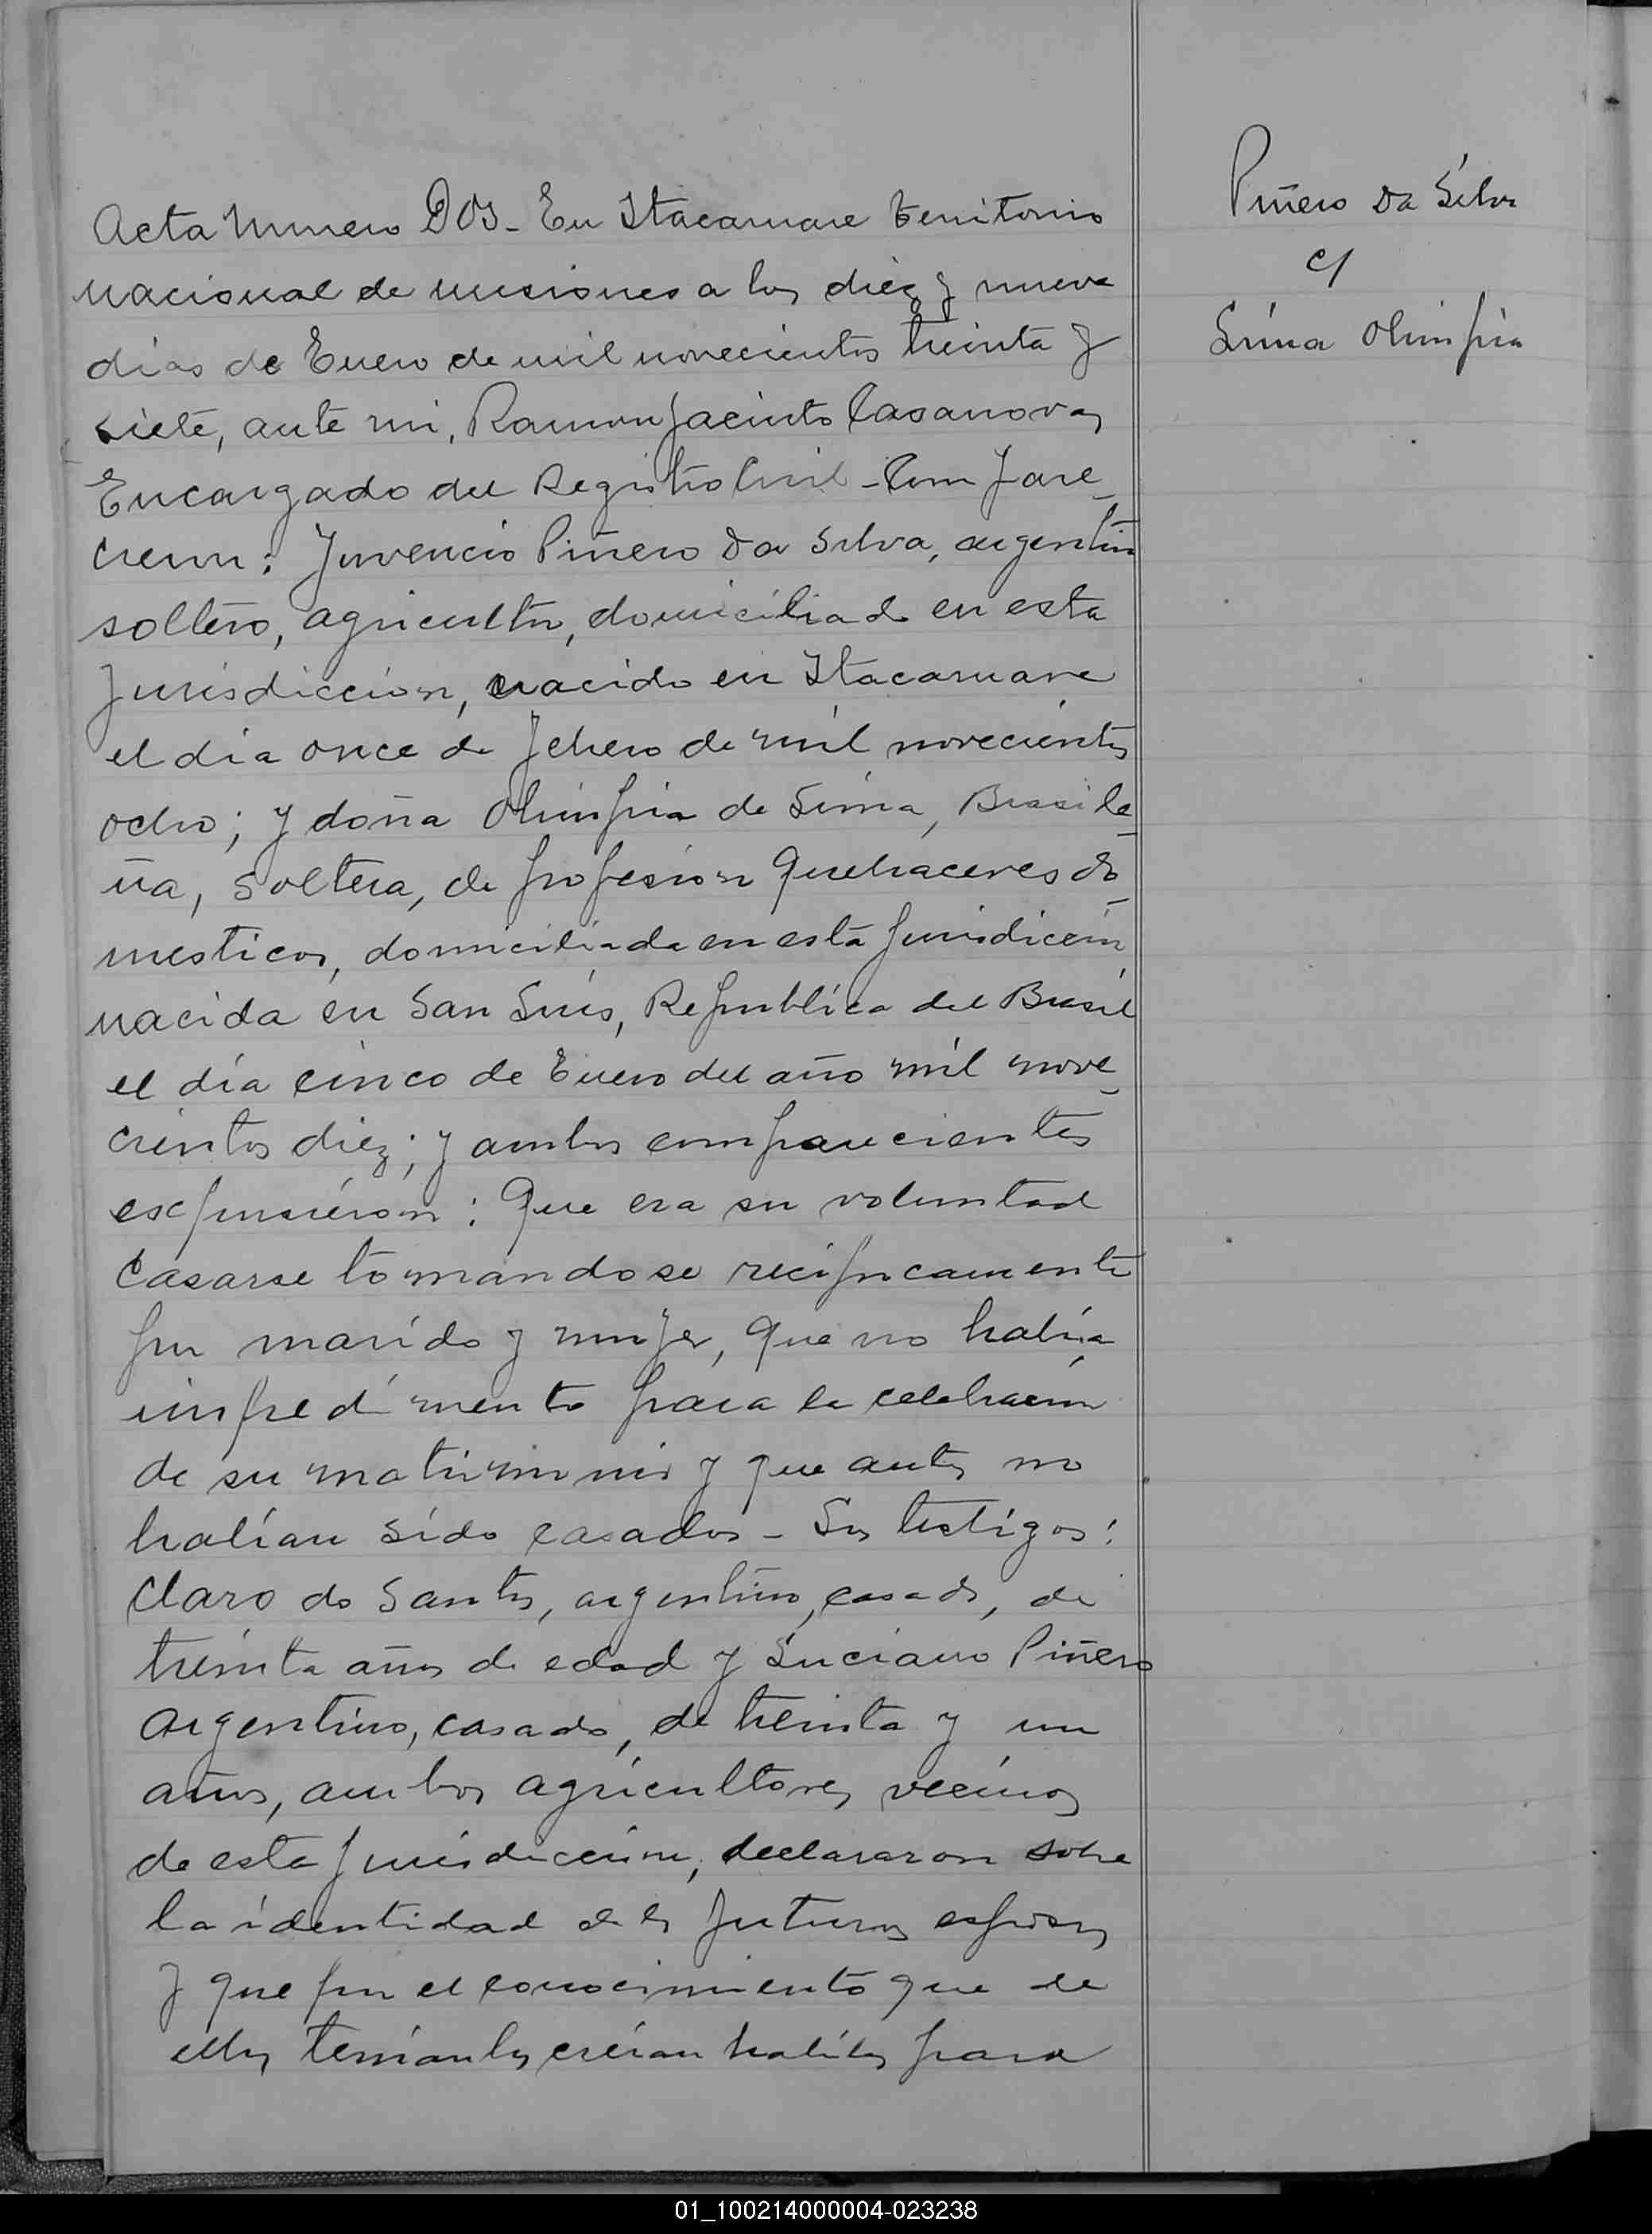 Acta Numero DOS - En Itacaruare territorio
nacional de misiones a los diez y nueve
dias de Enero de mil novecientos treinta y
siete, ante mi, Ramon Jacinto Casanova,
Encargado del Registro Civil - Compare_
cieron: Juvencio Piñero Da Silva, argentino
soltero, agricultor, domiciliado en esta
Jurisdiccion, nacido en Itacaruare
el dia once de febrero de mil novecientos
ocho; y doña Olimpia de Lima, Brasile_
ña, soltera, de profesion Quehaceres do_
mesticos, domiciliada en esta Jurisdiccion
nacida en San Luis, Republica del Brasil
el día cinco de Enero del año mil nove_
cientos diez; y ambos comparecientes
expusieron: Que era su voluntad
casarse tomandose reciprocamente
por marido y mujer, que no había
impedimento para la celebracion
de su matrimonio y que antes no
habían sido casados - Los testigos:
Claro do Santos, argentino, casado, de
treinta años de edad y Luciano Piñero
argentino, casado, de treinta y un
años, ambos agricultores vecinos
de esta Jurisdiccion, declararon sobre
la identidad de los futuros esposos
y que por el conocimiento que de
ellos tenian los creian habiles para
Piñero Da Silva
c/
Lima Olimpia
01_100214000004-023238